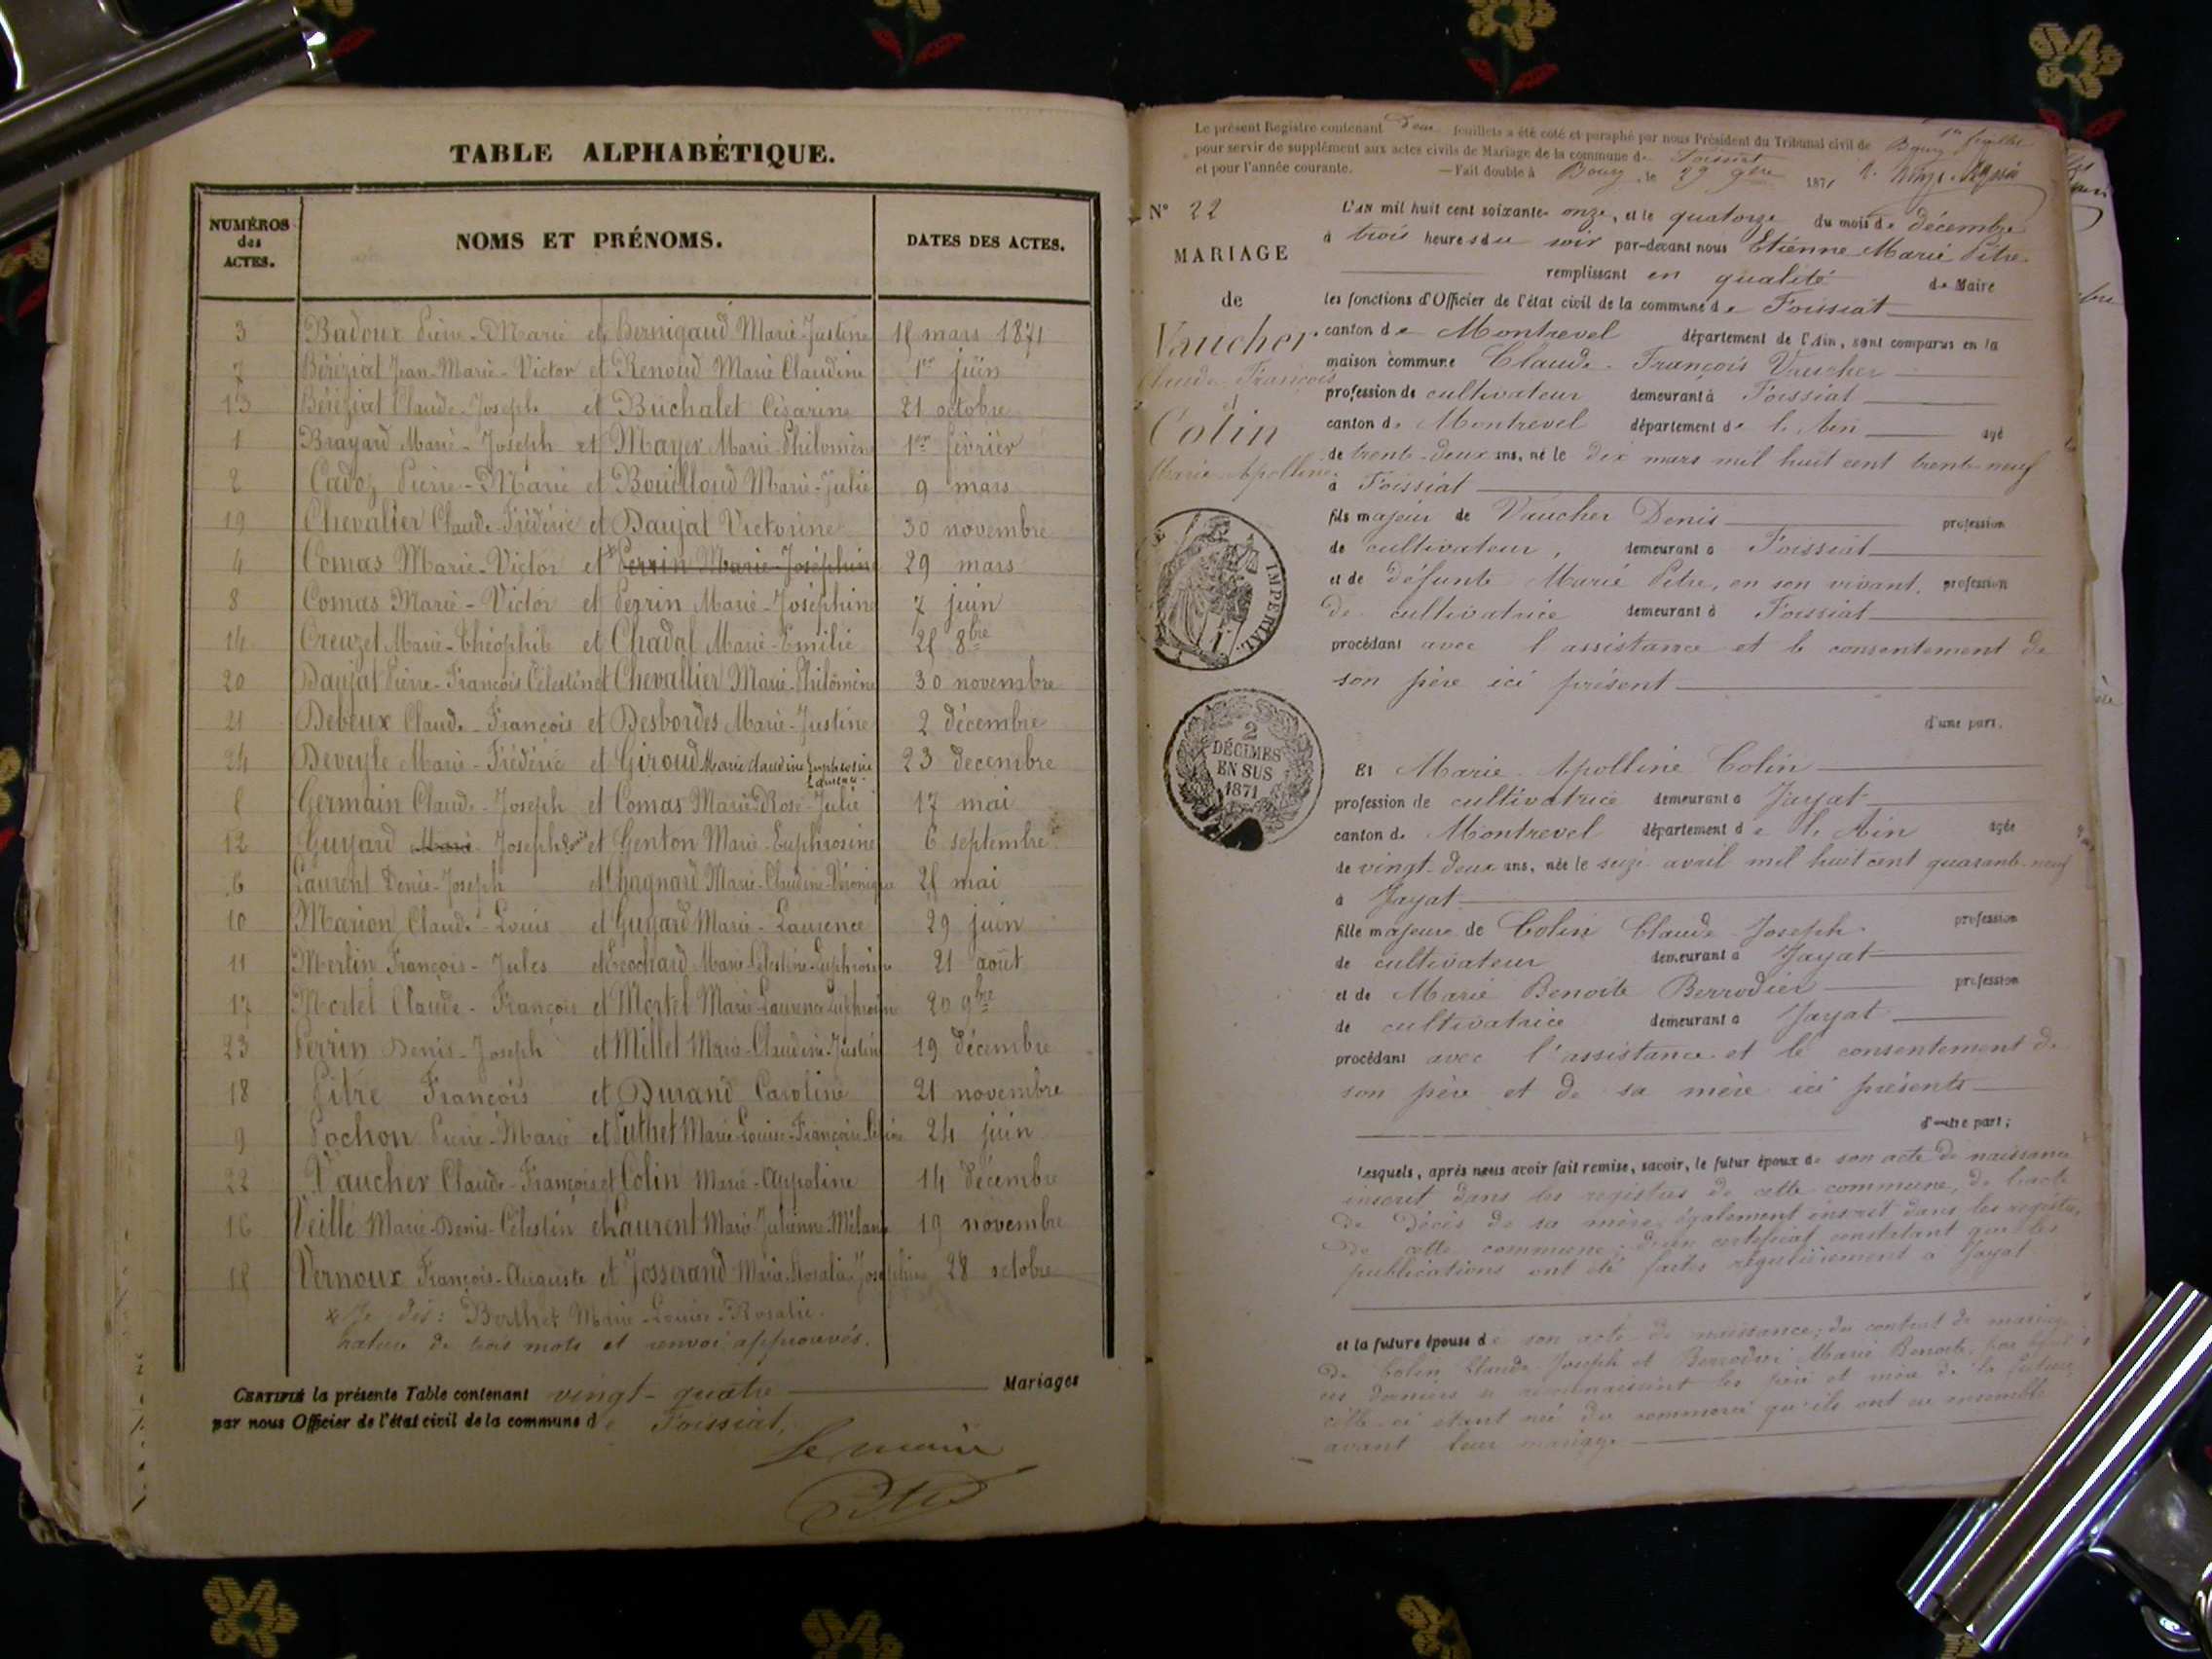 TABLE ALPHABÉTIQUE.
NUMÉROS des ACTES.
NOMS ET PRÉNOMS.
DATES DES ACTES.
3 Badoux Pierre-Marie et Bernigaud Marie-Justine 15 mars 1871
7 Béréziat Jean-Marie-Victor et Renoud Marie Claudine 1er juin
13 Béréziat Claude-Joseph et Buchalet Césarine 21 octobre
1 Brayard Marie-Joseph et Mayer Marie-Philomène 1er février
2 Cadoz Pierre-Marie et Bouilloud Marie-Julie 9 mars
19 Chevalier Claude-Frédéric et Daujat Victorine 30 novembre
4 Comas Marie-Victor et * Perrin Marie-Joséphine 29 mars
8 Comas Marie-Victor et Perrin Marie-Joséphine 7 juin
14 Creuzet Marie-Théophile et Chadal Marie-Emilie 25 8bre
20 Daujat Pierre-François Célestin et Chevallier Marie-Philomène 30 novembre
21 Debeux Claude-François et Desbordes Marie-Justine 2 décembre
24 Deveyle Marie-Frédéric et Giroud Marie Claudine Euphrosine 23 decembre
5 Germain Claude-Joseph et Comas Marie-Rose-Julie 17 mai
12 Guyard Marie Joseph Denis et Genton Marie-Euphrosine 6 septembre
6 Laurent Denis-Joseph et Chagnard Marie-Claudine-Véronique 25 mai
10 Marion Claude-Louis et Guyard Marie-Laurence 29 juin
11 Merlin François-Jules et Ecochard Marie-Célestine-Euphrosine 21 août
17 Mortel Claude-François et Mortel Marie-Laurence Euphrosine 20 9bre
23 Perrin Denis-Joseph et Millet Marie-Claudine-Justine 19 décembre
18 Pitre François et Durand Caroline 21 novembre
9 Pochon Pierre-Marie et Puthet Marie-Louise-Françoise 24 juin
22 Vaucher Claude-François et Colin Marie-Appoline 14 décembre
16 Vieille Marie-Denis-Célestin et Laurent Marie Julienne-Mélanie 19 novembre
15 Vernoux François-Auguste et Josserand Marie-Rosalie-Joséphine 28 octobre
* Je dis: Berthet Marie-Louise-Rosalie.
rature de trois mots et renvoi approuvés.
CERTIFIÉ la présente Table contenant vingt-quatre Mariages
par nous Officier de l'état civil de la commune de Foissiat,
Le maire
Pitre
Le présent Registre contenant Deux feuillets a été coté et paraphé par nous Président du Tribunal civil de Bourg
pour servir de supplément aux actes civils de Mariage de la commune de Foissiat
et pour l'année courante. — Fait double à Bourg, le 29 9bre 1871
N° 22
MARIAGE
de
Vaucher
Claude-François
et
Colin
Marie-Apolline
IMPERIAL
2
DÉCIMES
EN SUS
1871
L'AN mil huit cent soixante-onze, et le quatorze du mois de décembre
à trois heures du soir par-devant nous Etienne-Marie Pitre
remplissant en qualité de Maire
les fonctions d'Officier de l'état civil de la commune de Foissiat
canton de Montrevel département de l'Ain, sont comparus en la
maison commune Claude-François Vaucher
profession de cultivateur demeurant à Foissiat
canton de Montrevel département de l'Ain agé
de trente-deux ans, né le dix mars mil huit cent trente-neuf
à Foissiat
fils majeur de Vaucher Denis profession
de cultivateur, demeurant à Foissiat
et de défunte Marie Pitre, en son vivant, profession
de cultivatrice demeurant à Foissiat
procédant avec l'assistance et le consentement de
son père ici présent
d'une part.
Et Marie Apolline Colin
profession de cultivatrice demeurant à Jayat
canton de Montrevel département de l'Ain agée
de vingt-deux ans, née le seize avril mil huit cent quarante-neuf
à Jayat
fille majeure de Colin Claude Joseph profession
de cultivateur demeurant à Jayat
et de Marie Benoite Berrodier profession
de cultivatrice demeurant à Jayat
procédant avec l'assistance et le consentement de
son père et de sa mère ici présents
d'autre part;
Lesquels, après nous avoir fait remise, savoir, le futur époux de son acte de naissance
inscrit dans les registres de cette commune, de l'acte
de décès de sa mère également inscrit dans les registres
de cette commune; d'un certificat constatant que les
publications ont été faites régulièrement à Jayat
et la future épouse de son acte de naissance; du contrat de mariage
de Colin Claude Joseph et Berrodier Marie Benoite, par lequel
ces derniers se reconnaissent les père et mère de la future,
celle-ci étant née du commerce qu'ils ont eu ensemble
avant leur mariage